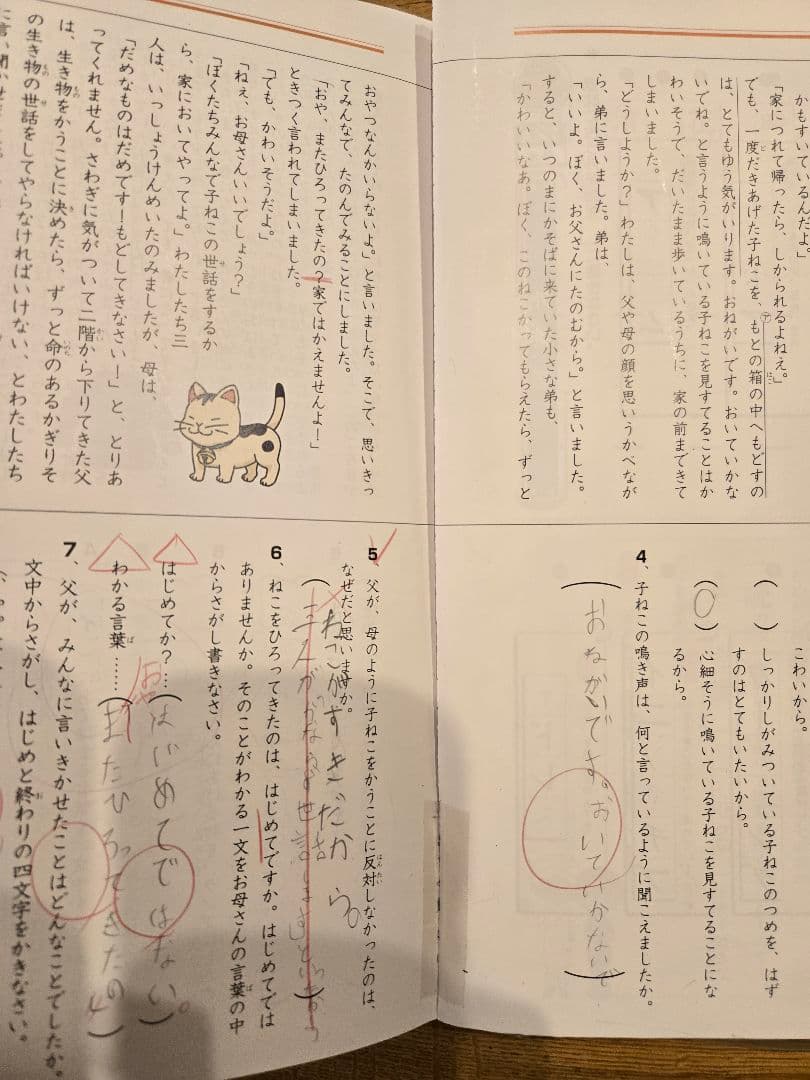 かもすいているんだよ。」
「家につれて帰ったら、しかられるよねえ。」
でも、一度だきあげた子ねこを、㋐もとの箱の中へもどすの
は、とてもゆう気がいります。おねがいです。おいていかな
いでね。と言うように鳴いている子ねこを見すてることはか
わいそうで、だいたまま歩いているうちに、家の前まできて
しまいました。
「どうしようか?」わたしは、父や母の顔を思いうかべなが
ら、弟に言いました。弟は、
「いいよ。ぼく、お父さんにたのむから。」と言いました。
すると、いつのまにかそばに来ていた小さな弟も、
「かわいいなあ。ぼく、このねこかってもらえたら、ずっと
おやつなんかいらないよ。」と言いました。そこで、思いきっ
てみんなで、たのんでみることにしました。
「おや、またひろってきたの?家ではかえませんよ!」
ときつく言われてしまいました。
「でも、かわいそうだよ。」
「ねえ、お母さんいいでしょう?」
「ぼくたちみんなで子ねこの世話をするか
ら、家においてやってよ。」わたしたち三
人は、いっしょうけんめいたのみましたが、母は、
「だめなものはだめです!もどしてきなさい!」と、とりあ
ってくれません。さわぎに気がついて二階から下りてきた父
は、生き物をかうことに決めたら、ずっと命のあるかぎりそ
の生き物の世話をしてやらなければいけない、とわたしたち
に言い聞かせ
こわいから。
( ) しっかりしがみついている子ねこのつめを、はず
すのはとてもいたいから。
(○) 心細そうに鳴いている子ねこを見すてることにな
るから。
4、子ねこの鳴き声は、何と言っているように聞こえましたか。
(おねがいです。おいていかないで)
5、父が、母のように子ねこをかうことに反対しなかったのは、
なぜだと思いますか。
ねこがすきだから。
6、ねこをひろってきたのは、はじめてですか。はじめてでは
ありませんか。そのことがわかる一文をお母さんの言葉の中
からさがし書きなさい。
はじめてか?…(はじめてではない。)
わかる言葉……(またひろってきたの)
おや
7、父が、みんなに言いきかせたことはどんなことでしたか。
文中からさがし、はじめと終わりの四文字をかきなさい。